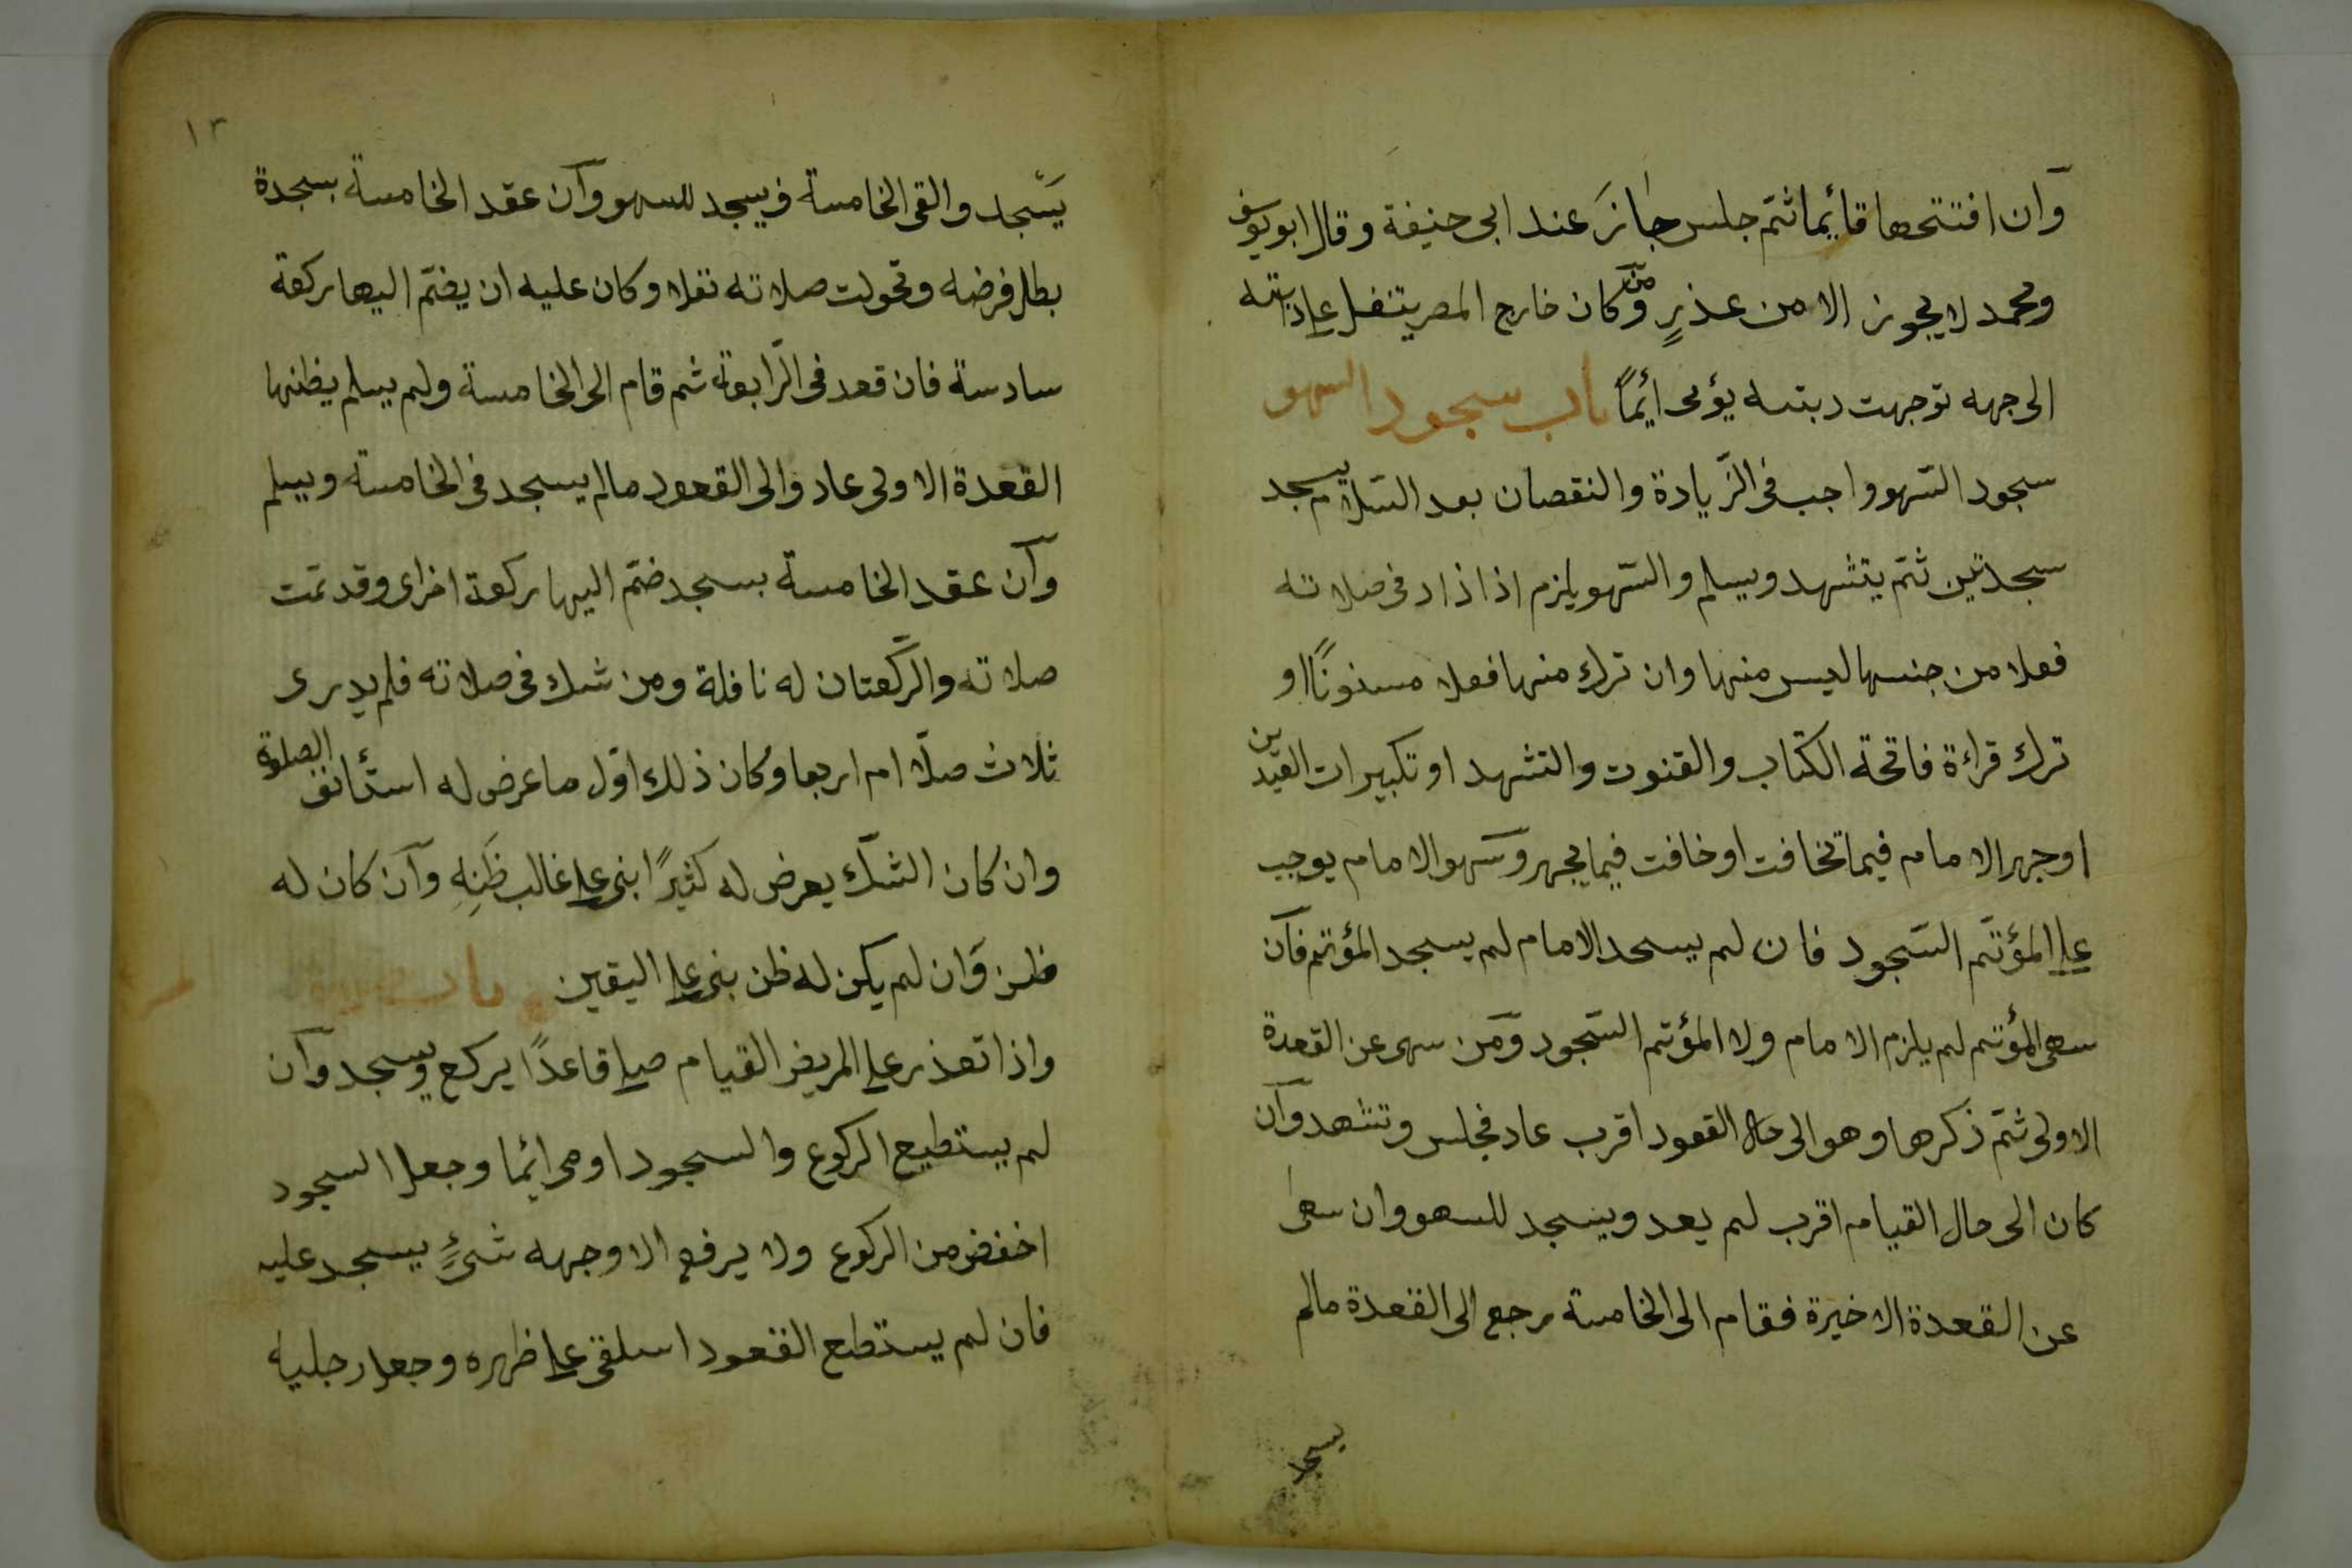 وآن افتتحها قائيما ثتم جلس جانز عند ابى حنيفة وقال ابويوسف
ومحمد لا يجوز الا من عذرٍ ومن كان خارج المصر يتنفل على دابته
الى جهه توجهت دبتىه يؤمى ائيمًا باب سجود السهو
سجود السّهو واجب فى الزّيادة والنقصان بعد السّلام يسجد
سجدتين ثمّ يتشهد ويسلم والسّهو يلزم اذا زاد فى صلاته
فعلا من جنسها ليس منها وان ترك منها فعلا مسنونًا او
ترك قراءة فاتحة الكتاب والقنوت والتشهد او تكبيرات العيدين
اوجهر الامام فيما تخافت اوخافت فيما يجهر وسهو الامام يوجب
على المؤتمّ السّجود فان لم يسحد الامام لم يسجد المؤتم فآن
سهى المؤتم لم يلزم الامام ولا المؤتم السّجود ومن سهى عن القعدة
الاولى ثمّ ذكرها وهو الى حال القعود اقرب عاد فجلس وتشهد وآن
كان الى حال القيام اقرب لم يعد ويسجد للسهو وان سهى
عن القعدة الاخيرة فقام الى الخامسة رجع الى القعدة مالم
يسجد
١٣
يسّجد والقى الخامسة ويسجد للسهو وآن عقد الخامسة بسجدة
بطل فرضه وتحولت صلاته نفلا وكان عليه ان يضمّ اليها ركعة
سادسة فان قعد فى الرّابعة ثم قام الى الخامسة ولم يسلم يظنها
القعدة الاولى عاد والى القعود مالم يسجد فى الخامسة ويسلم
وآن عقد الخامسة بسجد ضمّ اليها ركعة اخراى وقد تمت
صلاته والرّكعتان له نافلة ومن شك فى صلاته فلم يدرى
ثلاث صلّا ام اربعا وكان ذلك اوّل ما عرض له استأنف الصلوة
وان كان الشكّ يعرض له كثيرًا ابنى على غالب ظَنِهِ وآن كان له
ظن وَان لم يكن له ظن بنى على اليقين باب
واذا تعذر على المريض القيام صلى قاعدًا يركع ويسجد وآن
لم يستطيع الركوع والسجود اومى ائيما وجعل السجود
اخفض من الركوع ولا يرفع الا وجهه شىءٍ يسجد عليه
فان لم يستطع القعود اسلقى على ظهره وجعل رجليه